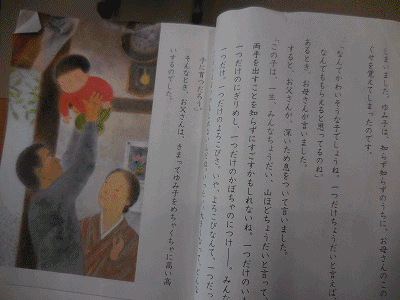 しまいました。ゆみ子は、知らず知らずのうちに、お母さんのこの
ぐせを覚えてしまったのです。
「なんてかわいそうな子でしょうね。一つだけちょうだいと言えば、
なんでももらえると思ってるのね。」
あるとき、お母さんが言いました。
すると、お父さんが、深いため息をついて言いました。
「この子は、一生、みんなちょうだい、山ほどちょうだいと言って、
両手を出すことを知らずにすごすかもしれないね。一つだけのいも
一つだけのにぎりめし、一つだけのかぼちゃのにつけ——。みんな
一つだけ。一つだけのよろこびさ。いや、よろこびなんて、一つだっ
子に育つだろう。」
そんなとき、お父さんは、きまってゆみ子をめちゃくちゃに高い高
いするのでした。